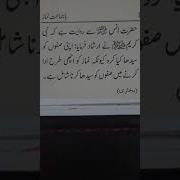 باجماعت نماز
حضرت انس ؓ سے روایت ہے کہ نبی
کریم ﷺ نے ارشاد فرمایا: اپنی صفوں کو
سیدھا کیا کرو کیونکہ نماز کو اچھی طرح ادا
کرنے میں صفوں کو سیدھا کرنا شامل ہے۔